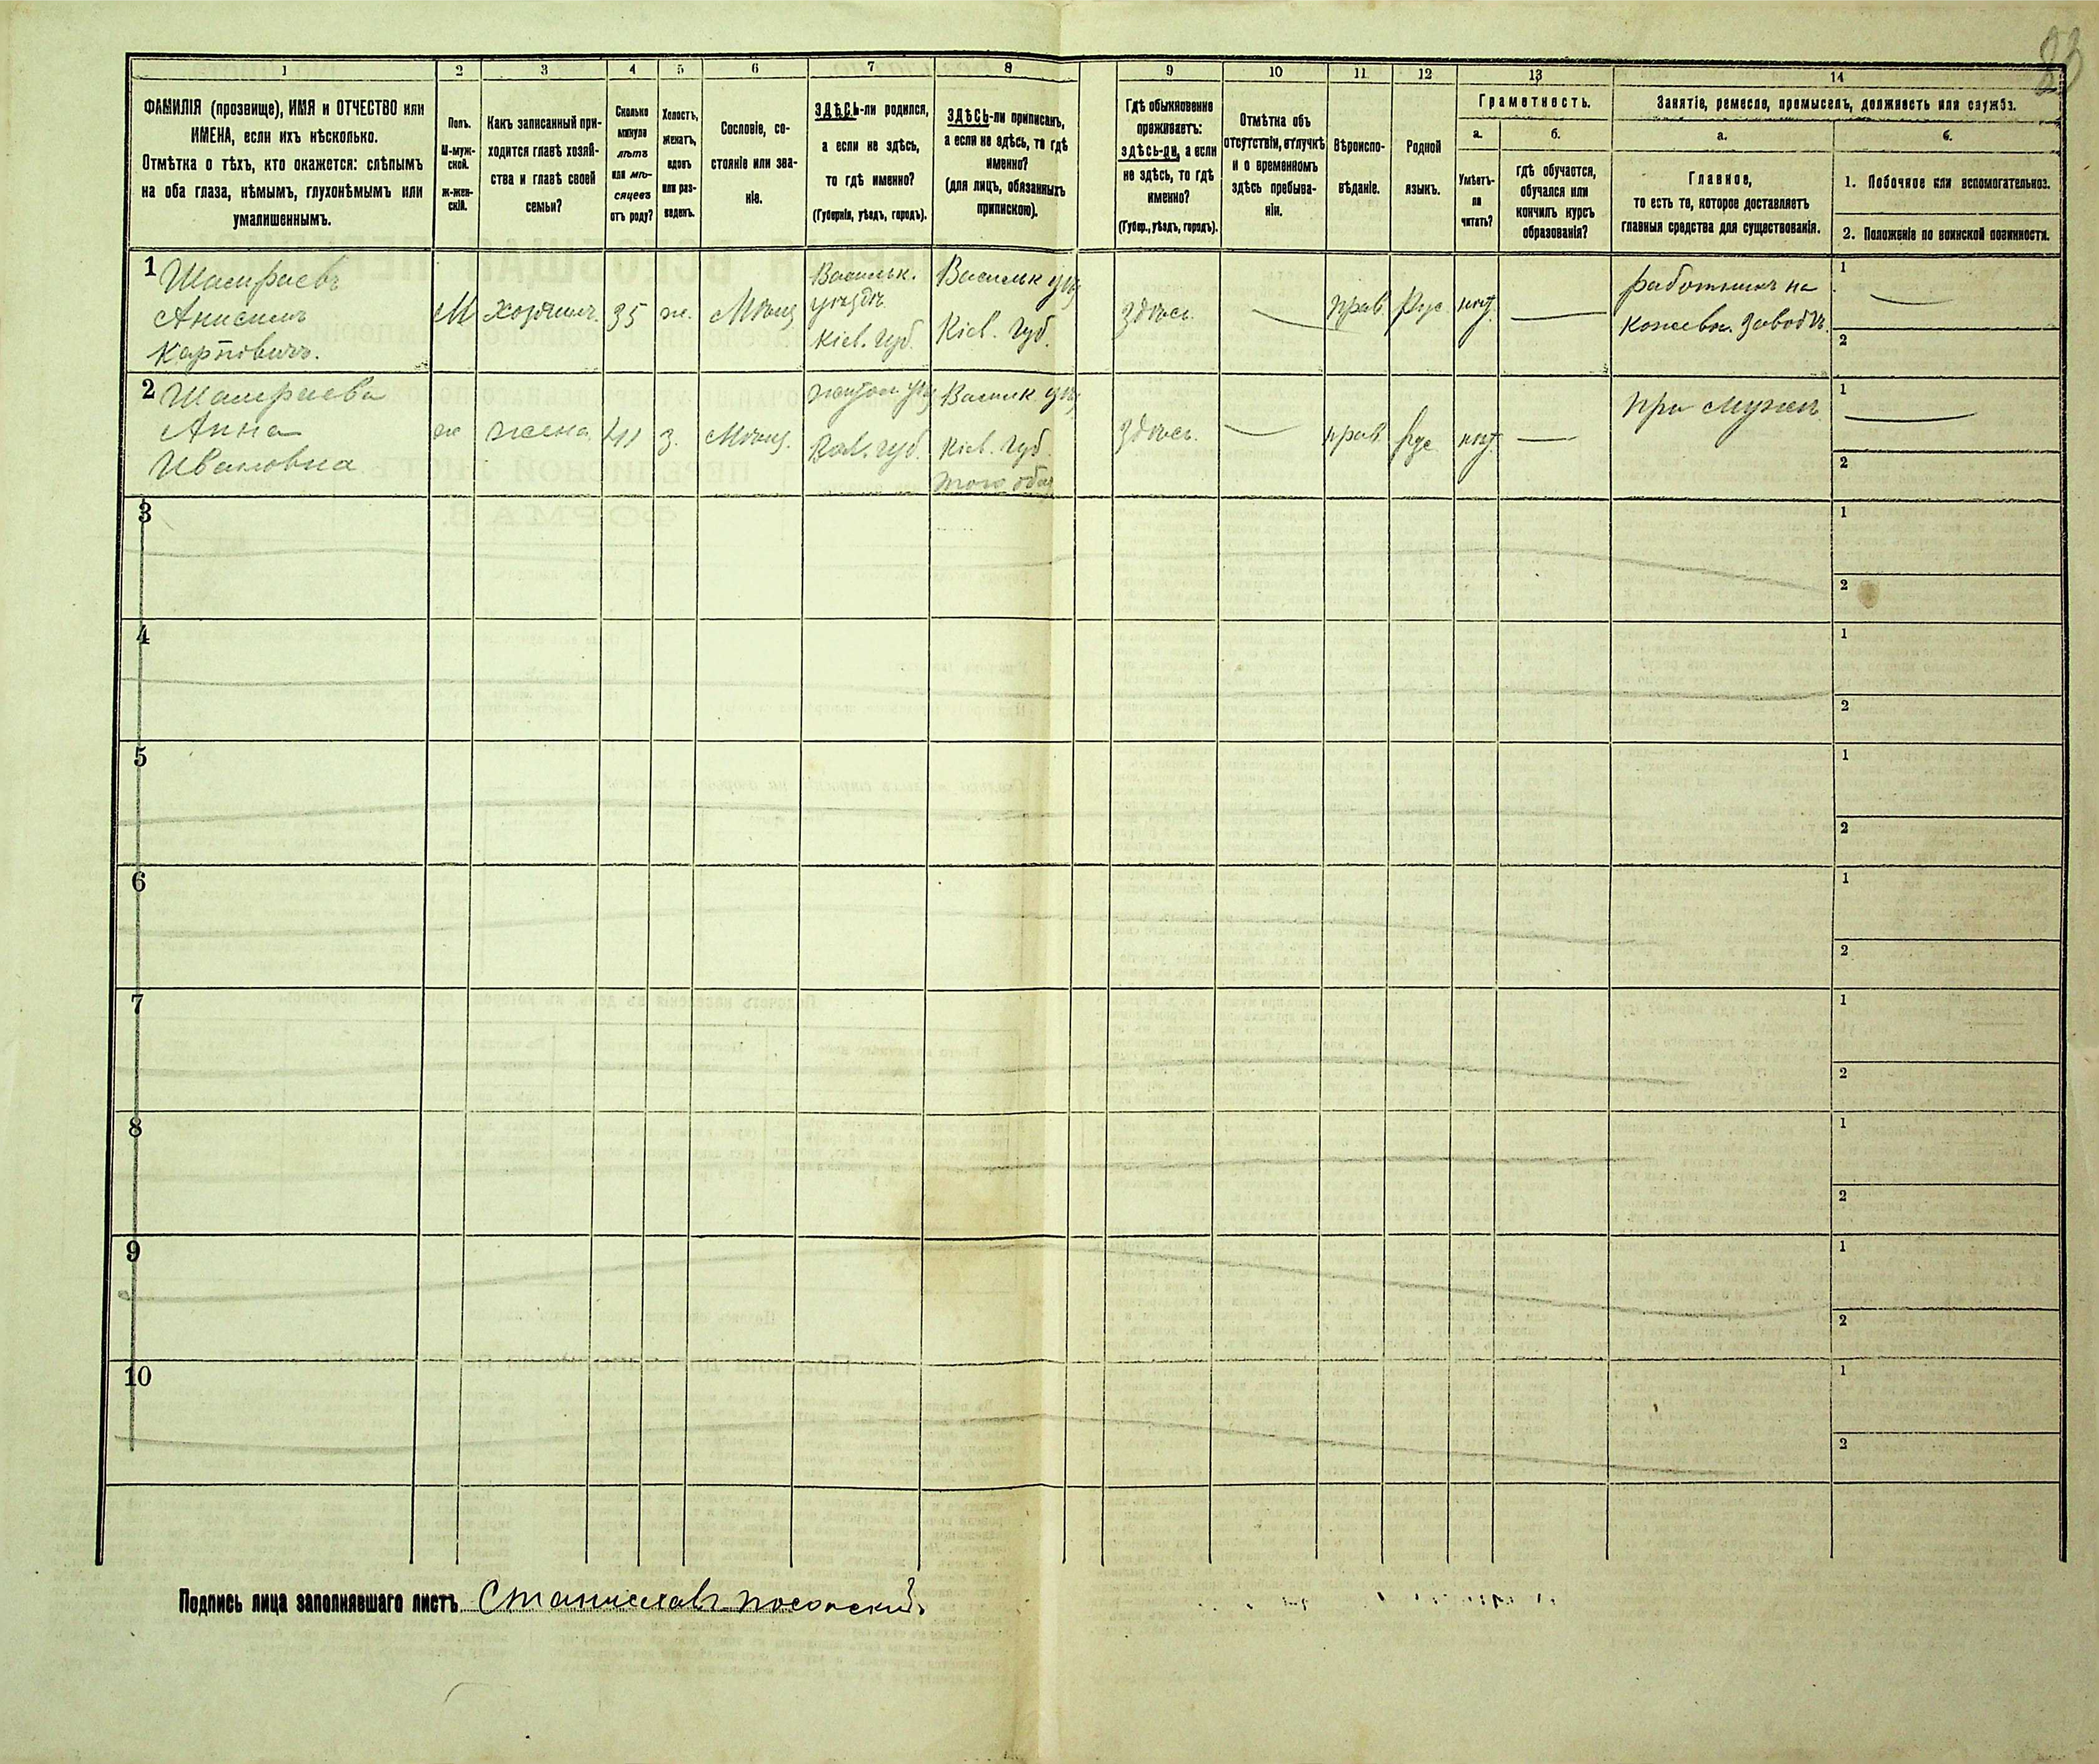 83
1 2 3 4 5 6 7 8 9 10 11 12 13 14
ФАМИЛІЯ (прозвище), ИМЯ и ОТЧЕСТВО или
ИМЕНА, если ихъ нѣсколько.
Отмѣтка о тѣхъ, кто окажется: слѣпымъ
на оба глаза, нѣмымъ, глухонѣмымъ или
умалишеннымъ.
Полъ.
М-муж-
ской.
ж-жен-
скій.
Какъ записанный при-
ходится главѣ хозяй-
ства и главѣ своей
семьи?
Сколько
минуло
лѣтъ
или мѣ-
сяцевъ
отъ роду?
Холостъ,
женатъ,
вдовъ
или раз-
веденъ.
Сословіе, со-
стояніе или зва-
ніе.
ЗДѢСЬ-ли родился,
а если не здѣсь,
то гдѣ именно?
(Губернія, уѣздъ, городъ).
ЗДѢСЬ-ли приписанъ,
а если не здѣсь, то гдѣ
именно?
(для лицъ, обязанныхъ
припискою).
Гдѣ обыкновенно
проживаетъ:
здѣсь-ли, а если
не здѣсь, то гдѣ
именно?
(Губер., уѣздъ, городъ).
Отмѣтка объ
отсутствіи, отлучкѣ
и о временномъ
здѣсь пребыва-
ніи.
Вѣроиспо-
вѣданіе.
Родной
языкъ.
Грамотность.
а.
Умѣетъ-
ли
читать?
б.
гдѣ обучается,
обучался или
кончилъ курсъ
образованія?
Занятіе, ремесло, промыселъ, должность или служба.
а.
Главное,
то есть то, которое доставляетъ
главныя средства для существованія.
б.
1. Побочное или вспомогательное.
2. Положеніе по воинской повинности.
1 Шамраевъ
Анисимъ
Карповичъ.
М
хозяинъ.
35
ж.
Мѣщ
Васильк.
уѣздѣ
Кіев. губ.
Васильк уѣз
Кіев. губ.
Здѣсь.
прав
Рус.
нѣт.
работникъ на
кожевн. заводѣ.
1
2
2 Шамраева
Анна
Ивановна
ж
жена
41
з.
Мѣщ.
губ.
Васильк уѣз
Кіев. губ.
того общ
Здѣсь.
прав.
Рус
нѣт.
при мужѣ
1
2
3
1
2
4
1
2
5
1
2
6
1
2
7
1
2
8
1
2
9
1
2
10
1
2
Подпись лица заполнявшаго листъ Станиславъ